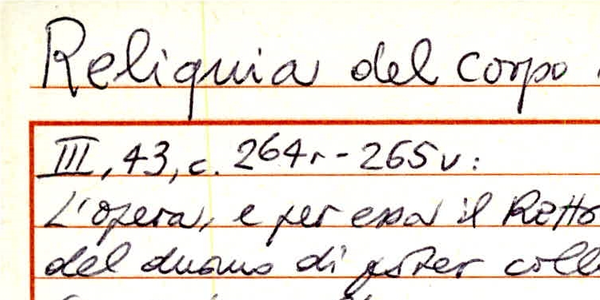 Reliquia del corpo
III, 43, c. 264r - 265v:
L'opera, e per essa il Retto
del duomo di poter coll